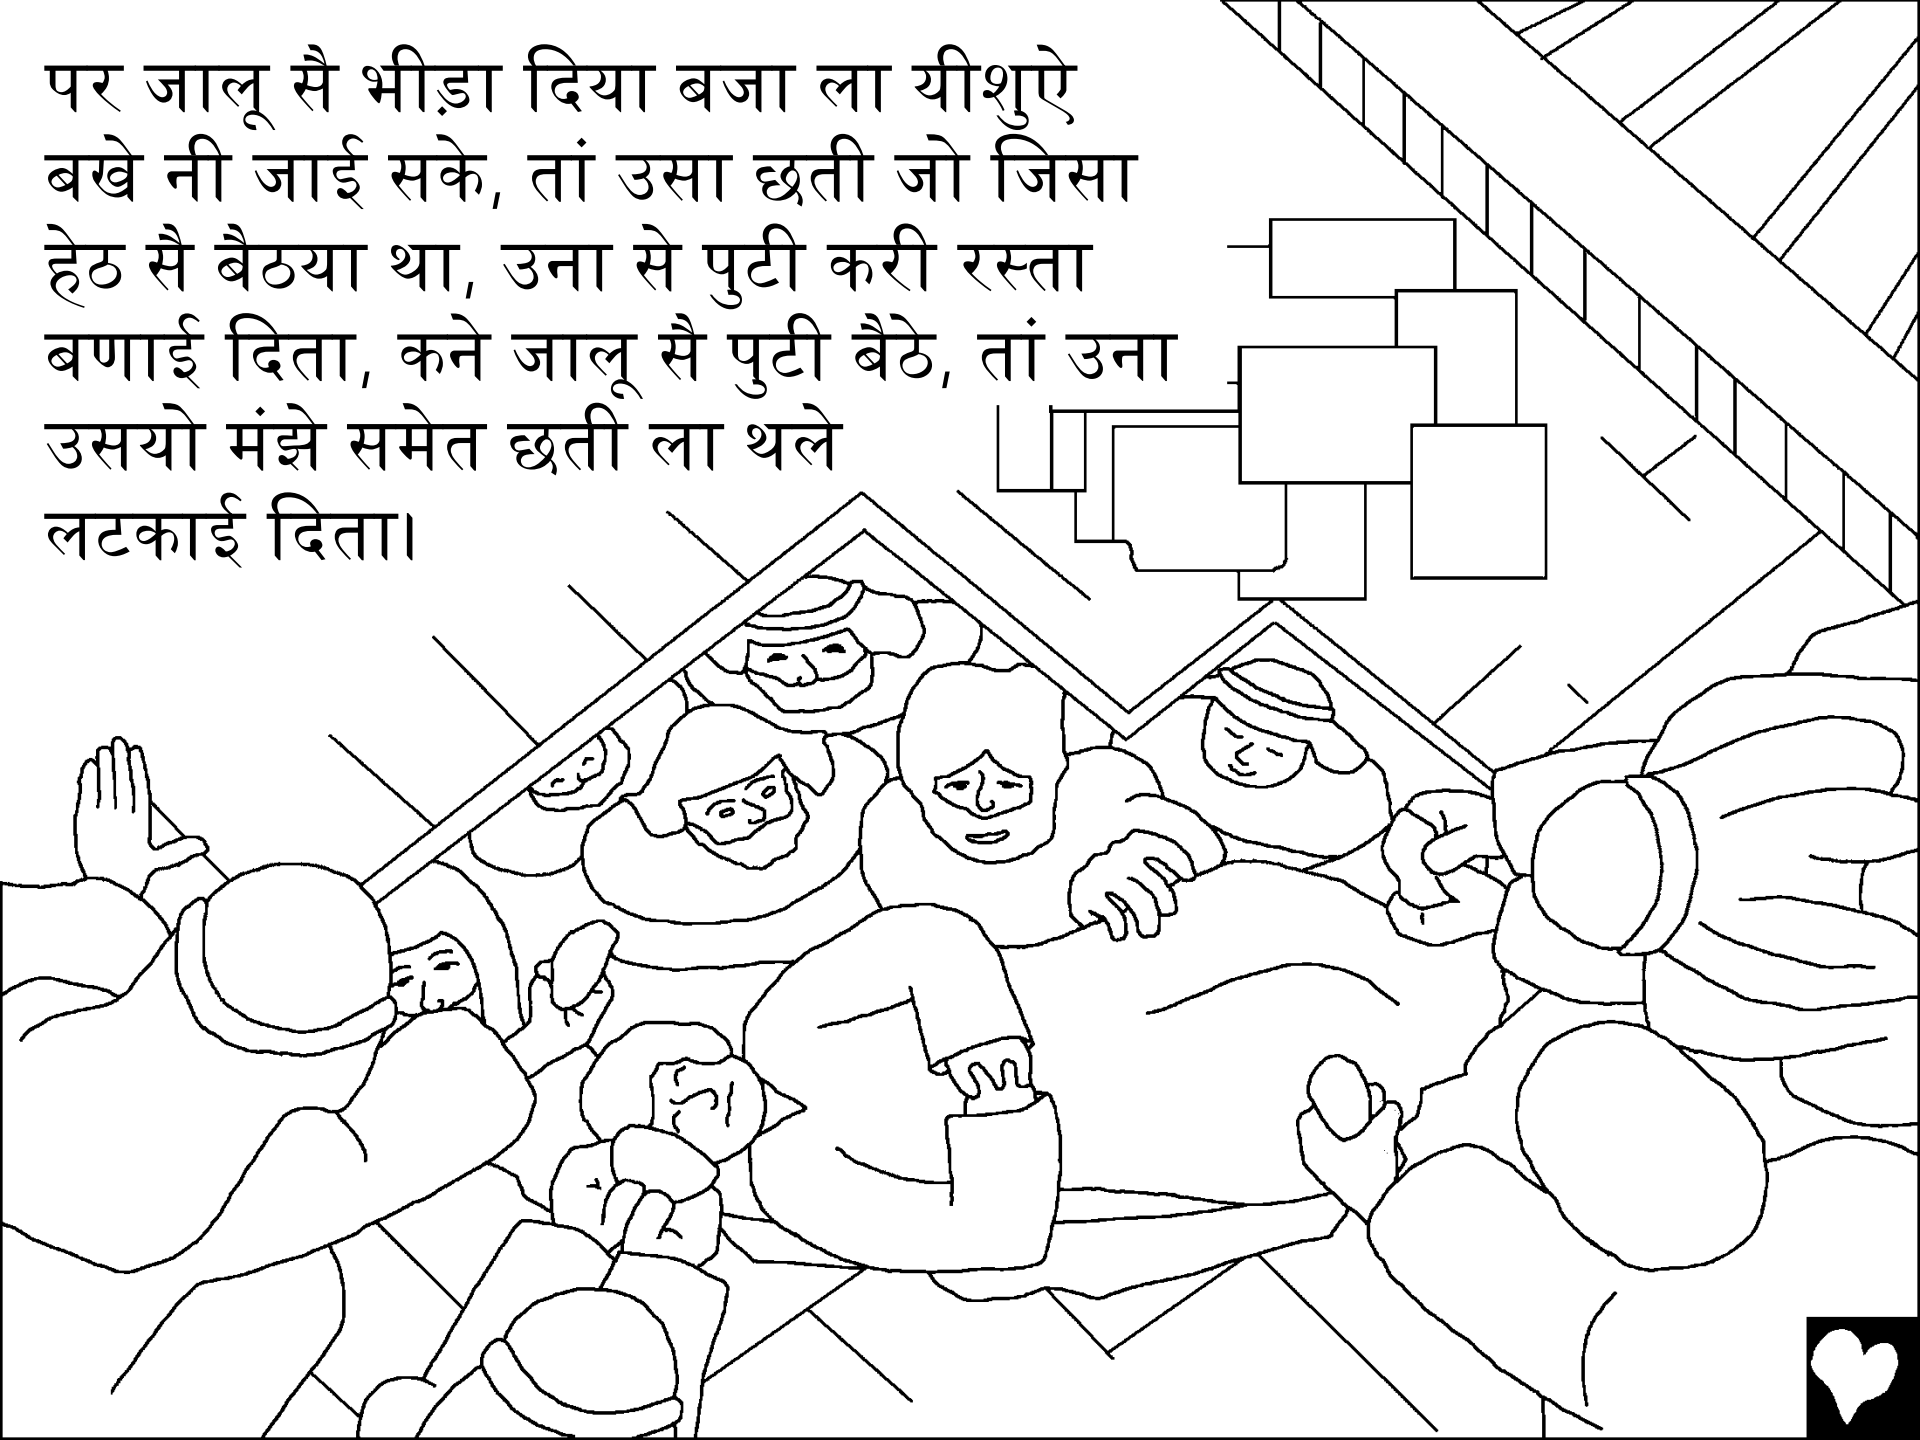 पर जालू सै भीड़ा दिया बजा ला यीशुऐ
बखे नी जाई सके, तां उसा छती जो जिसा
हेठ सै बैठया था, उना से पुटी करी रस्ता
बणाई दिता, कने जालू सै पुटी बैठे, तां उना
उसयो मंझे समेत छती ला थले
लटकाई दिता।